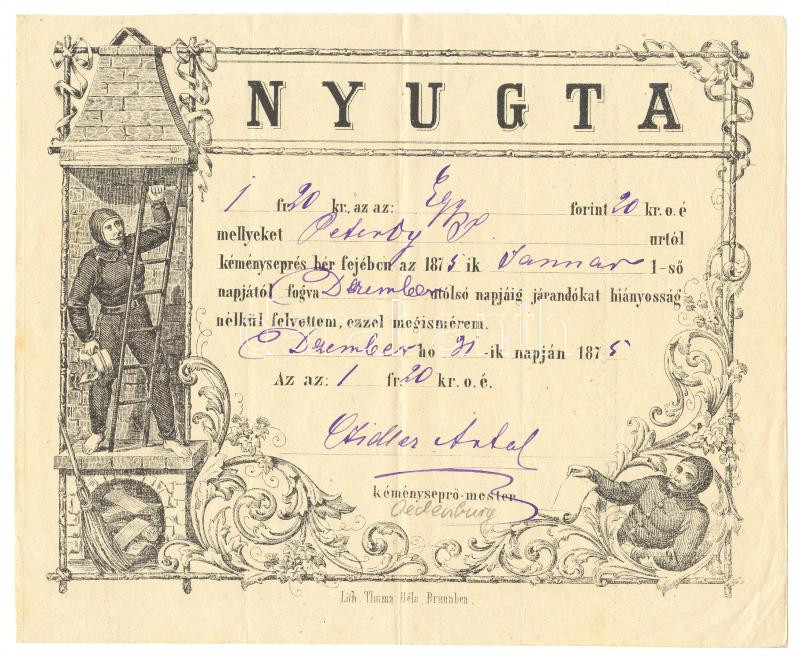 NYUGTA
1 fr 20 kr., az az: Egy forint 20 kr. o. é
mellyeket Peterdy P. urtól
kéményseprés bér fejében az 1875 ik Januar 1-ső
napjától fogva Dezember utólsó napjáig járandókat hiányosság
nélkül felvettem, ezzel megismérem.
Dezember ho 31-ik napján 1875
Az az: 1 fr 20 kr. o. é.
Antal
kéményseprö-mester
Oedenburg
Lith. Thuma Béla